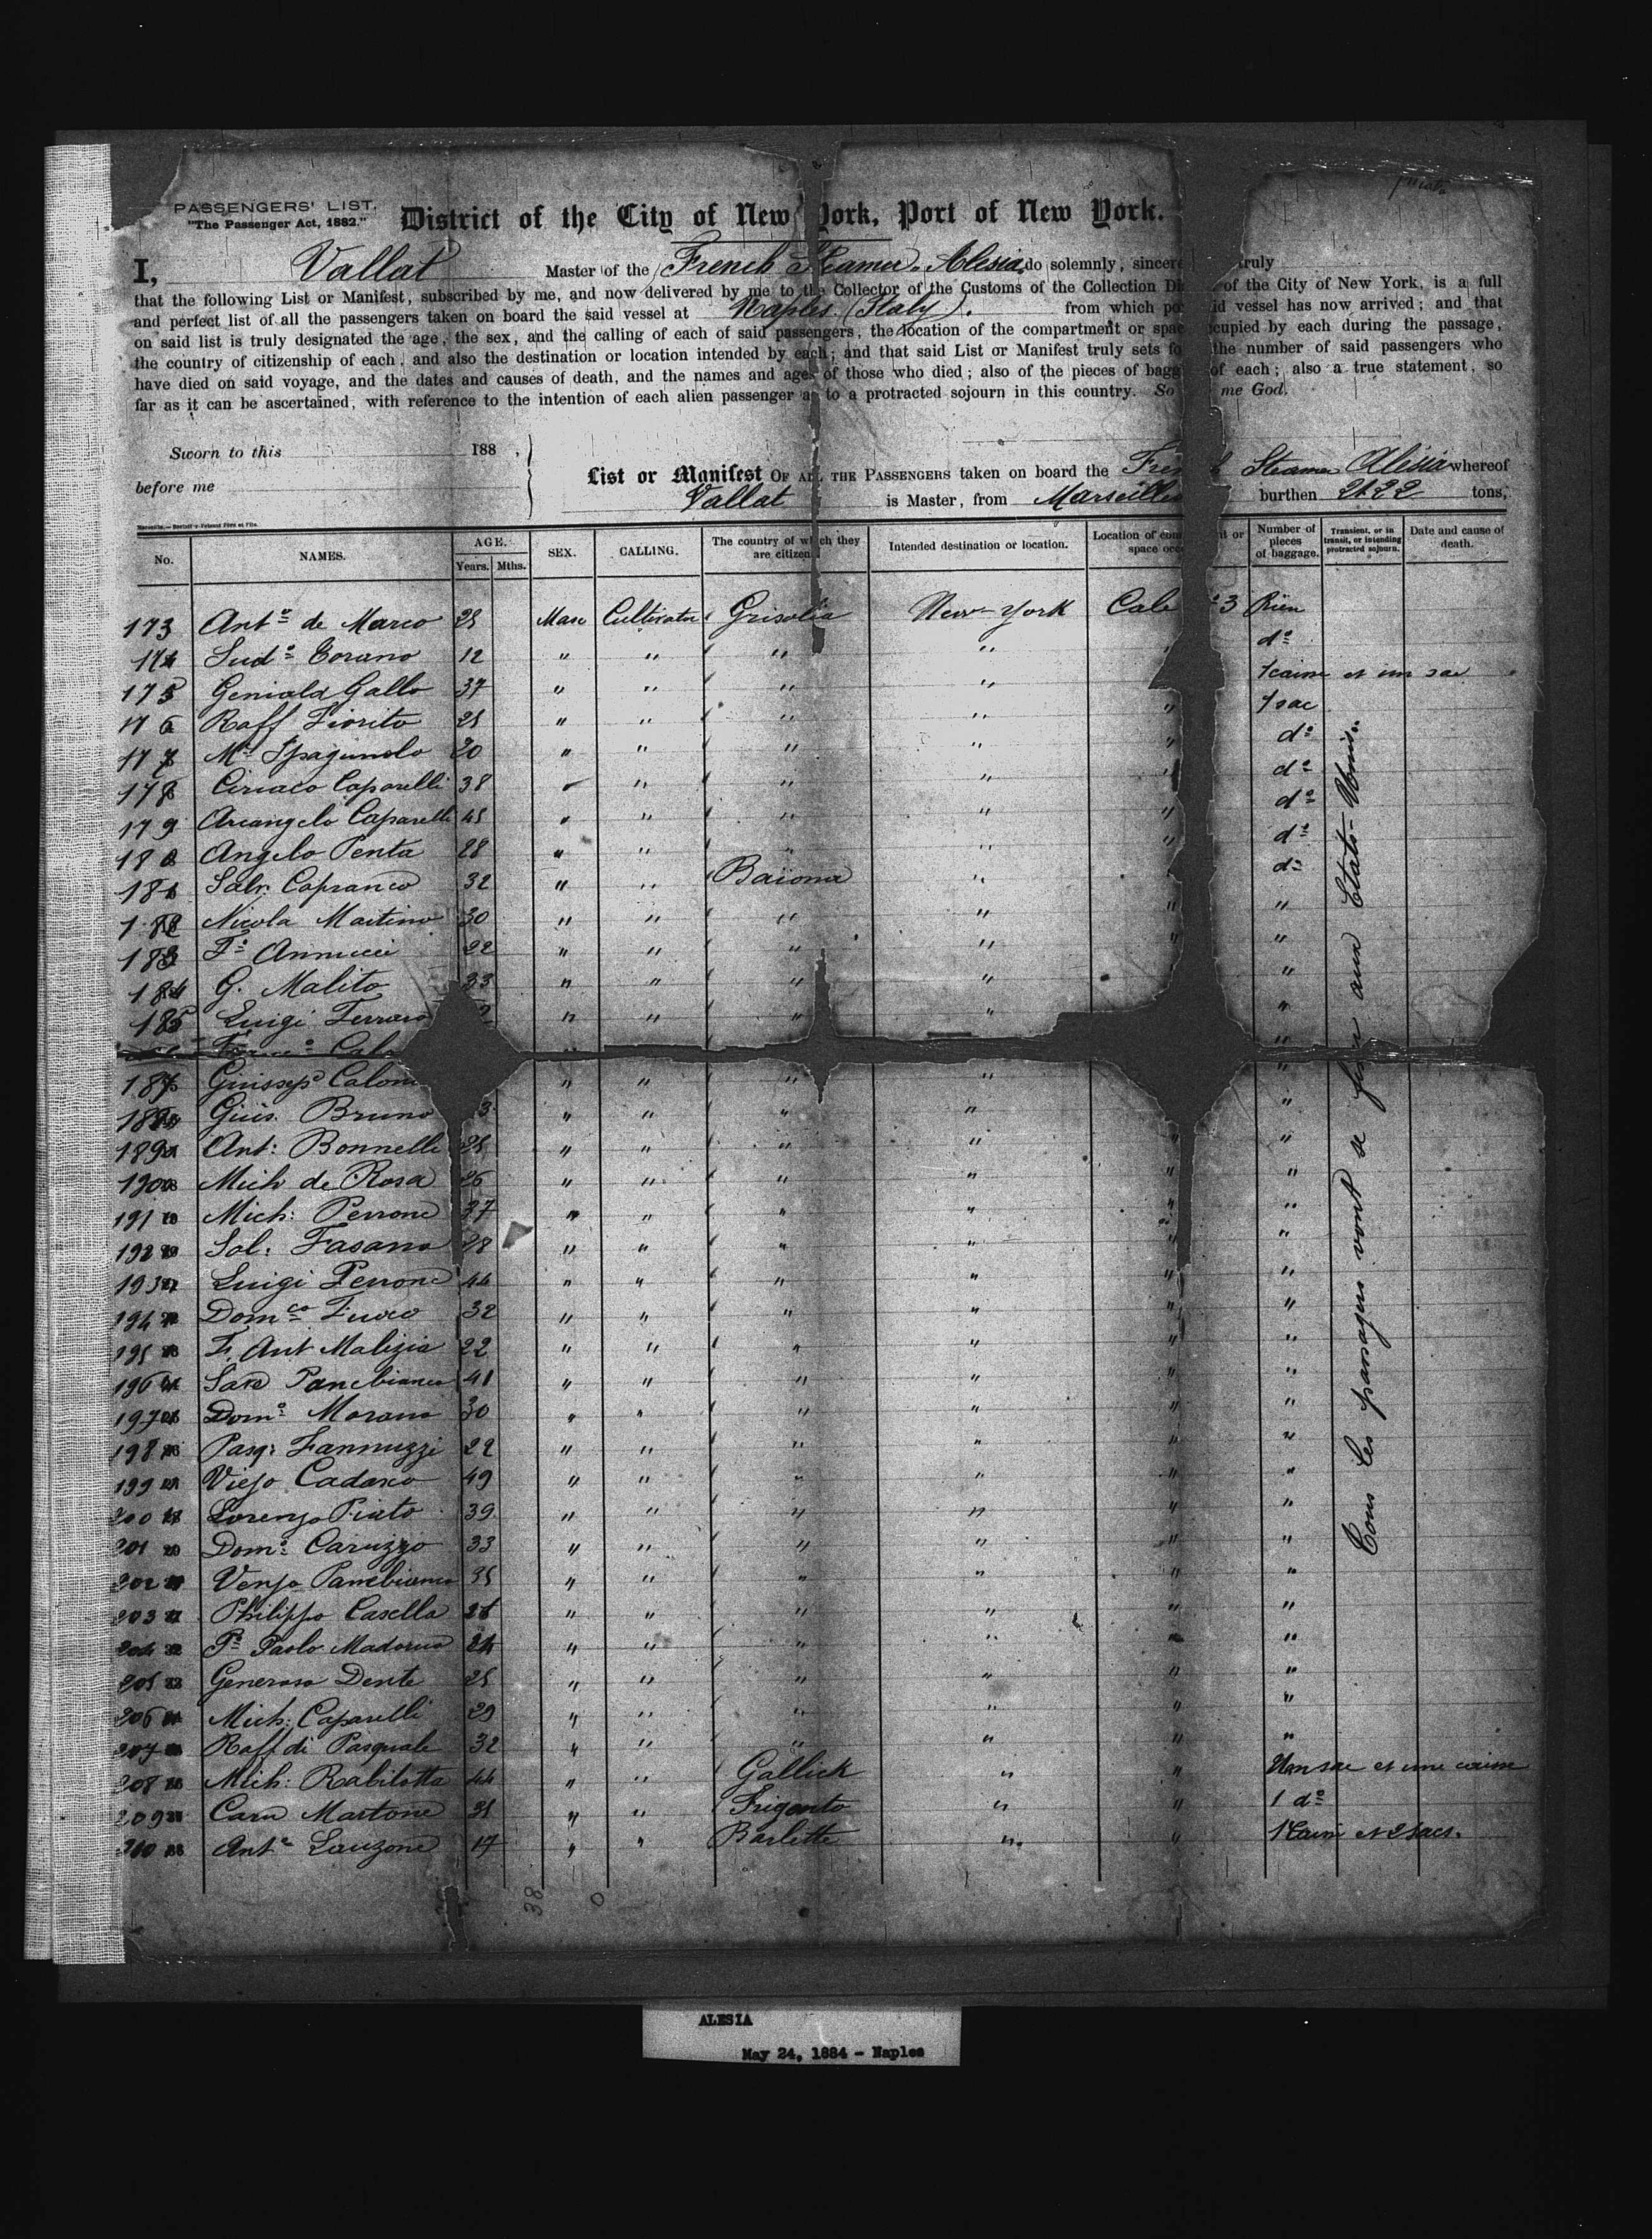 PASSENGERS' LIST.
"The Passenger Act, 1882."
District of the City of New York, Port of New York.
I, Vallat Master of the French Steamer Alesia do solemnly, sincere truly
that the following List or Manifest, subscribed by me, and now delivered by me to the Collector of the Customs of the Collection Di of the City of New York, is a full
and perfect list of all the passengers taken on board the said vessel at Naples (Italy). from which po id vessel has now arrived; and that
on said list is truly designated the age, the sex, and the calling of each of said passengers, the location of the compartment or spac cupied by each during the passage,
the country of citizenship of each, and also the destination or location intended by each; and that said List or Manifest truly sets fo the number of said passengers who
have died on said voyage, and the dates and causes of death, and the names and ages of those who died; also of the pieces of bagg of each; also a true statement, so
far as it can be ascertained, with reference to the intention of each alien passenger as to a protracted sojourn in this country. So me God.
Sworn to this 188 ,
before me
List or Manifest OF ALL THE PASSENGERS taken on board the French Steamer Alesia whereof
Vallat is Master, from Marseilles burthen 2122 tons,
No. NAMES. AGE. Years. Mths. SEX. CALLING. The country of which they are citizen Intended destination or location. Location of com nt or space occ Number of pieces of baggage. Transient, or in transit, or intending protracted sojourn. Date and cause of death.
173 Ant° de Marco 25 Masc Cultivator Grisolia New-York Cale 3 Rien
174 Lud° Corano 12 " " " " d°
175 Geniald Gallo 37 " " " " 1 caisse et un sac
176 Raff Fiorito 25 " " " " " 1 sac
177 Spagnuolo 20 " " " " " d°
178 Ciriaco Caparelli 38 " " " " d°
179 Arcangelo Caparelli 45 " " " " " d°
180 Angelo Penta 28 " " " " " d°
181 Salv. Capranco 32 " " Baiona " d°
182 Nicola Martino 30 " " " " " "
183 F° Annucci 22 " " " " " "
184 G. Malito 33 " " " " "
185 Luigi Ferraro " " " " "
187 Guissep° Calom " " " " "
188 Gius. Bruno 3 " " " " "
189 Ant: Bonnelli 25 " " " " " "
190 Mich de Rosa 26 " " " " " "
191 Mich: Perrone 37 " " " " " "
192 Sal: Fasano 28 " " " " " "
193 Luigi Perrone 44 " " " " " "
194 Dom<sup>co</sup> Fusco 32 " " " " " "
195 F. Ant Malizia 22 " " " " " "
196 Panebianco 41 " " " " " "
197 Dom° Morano 30 " " " " " "
198 Pasq: Iannuzzi 22 " " " " " "
199 Cadarco 49 " " " " " "
200 Lorenzo Pinto 39 " " " " " "
201 Dom° Caruzzo 33 " " " " " "
202 Panebianco 35 " " " " " "
203 Philippo Casella 28 " " " " " "
204 Paolo Madorno 24 " " " " " "
205 Generoso Dente 25 " " " " " "
206 Mich: Caparelli 29 " " " " " "
207 Raff di Pasquale 32 " " " " " "
208 Mich: Rabilotta 44 " " Gallick " " Un sac et une caisse
209 Carn Martone 31 " " Frigento " " 1 d°
210 Ant° Lauzone 17 " " Barlette " " 1 Caisse et 2 sacs.
Tous les passagers vont se fixer aux Etats-Unis.
38 0
ALESIA
May 24, 1884 - Naples